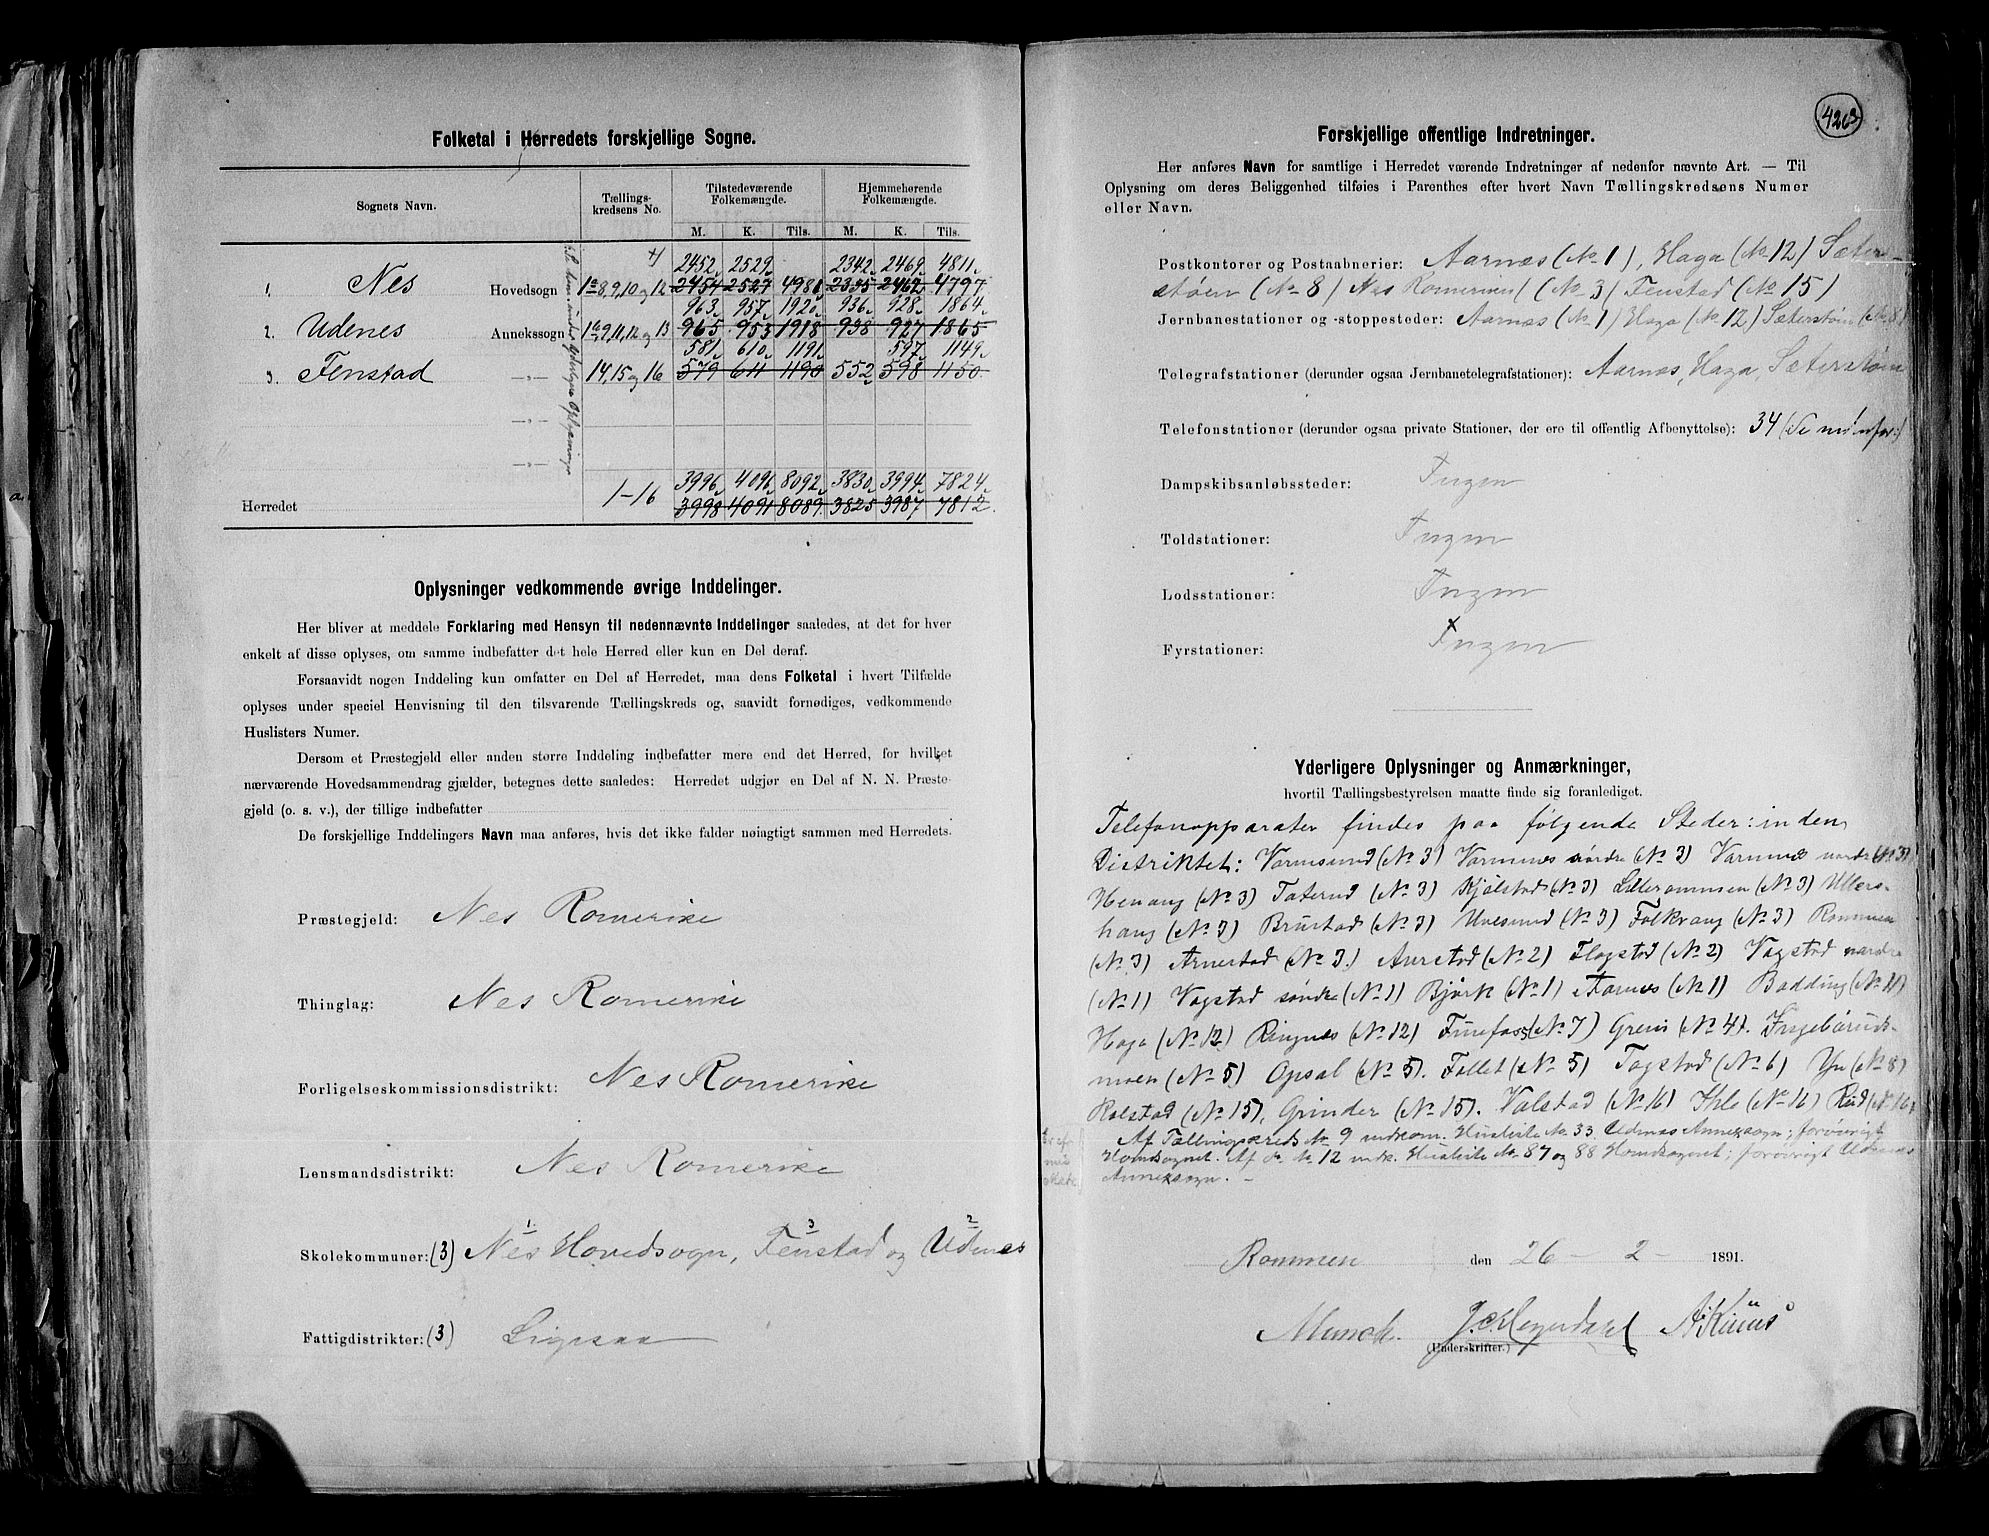 Folketal i Herredets forskjellige Sogne.
Sognets Navn.
Tællings-
kredsens No.
Tilstedeværende
Folkemængde.
Hjemmehørende
Folkemængde.
M. K. Tils. M. K. Tils.
2452 2529 2342 2469 4811
1. Nes Hovedsogn 1-8, 9, 10 og 12 2454 2527 4981 2335 2462 4797
963 957 1920 936 928 1864
2. Udenes Annekssogn 9, 11, 12 og 13 965 953 1918 938 927 1865
581 610 1191 597 1149
3. Fenstad —„— 14, 15 og 16 579 611 1190 552 598 1150
—„—
—„—
3996 4096 8092 3830 3994 7824
Herredet 1-16 3998 4091 8089 3825 3987 7812
Oplysninger vedkommende øvrige Inddelinger.
Her bliver at meddele Forklaring med Hensyn til nedennævnte Inddelinger saaledes, at det for hver
enkelt af disse oplyses, om samme indbefatter det hele Herred eller kun en Del deraf.
Forsaavidt nogen Inddeling kun omfatter en Del af Herredet, maa dens Folketal i hvert Tilfælde
oplyses under speciel Henvisning til den tilsvarende Tællingskreds og, saavidt fornødiges, vedkommende
Huslisters Numer.
Dersom et Præstegjeld eller anden større Inddeling indbefatter mere end det Herred, for hvilket
nærværende Hovedsammendrag gjælder, betegnes dette saaledes: Herredet udgjør en Del af N. N. Præste-
gjeld (o. s. v.), der tillige indbefatter
De forskjellige Inddelingers Navn maa anføres, hvis det ikke falder nøiagtigt sammen med Herredets.
Præstegjeld: Nes Romerike
Thinglag: Nes Romerike
Forligelseskommissionsdistrikt: Nes Romerike
Lensmandsdistrikt: Nes Romerike
1 3 2
Skolekommuner: (3) Nes Hovedsogn, Fenstad og Udenes
Fattigdistrikter: (3) Ligesaa
4263
Forskjellige offentlige Indretninger.
Her anføres Navn for samtlige i Herredet værende Indretninger af nedenfor nævnte Art. — Til
Oplysning om deres Beliggenhed tilføies i Parenthes efter hvert Navn Tællingskredsens Numer
eller Navn.
Postkontorer og Postaabnerier: Aarnæs (No 1), Haga (No 12) Sæter-
støen (No 8) Nes Romerike (No 3) Fenstad (No 15)
Jernbanestationer og -stoppesteder: Aarnæs (No 1) Haga (No 12) Sæterstøen (No 8)
Telegrafstationer (derunder ogsaa Jernbanetelegrafstationer): Aarnæs, Haga, Sæterstøen
Telefonstationer (derunder ogsaa private Stationer, der ere til offentlig Afbenyttelse): 34 (Se nedenfor)
Dampskibsanløbssteder: Ingen
Toldstationer: Ingen
Lodsstationer: Ingen
Fyrstationer: Ingen
Yderligere Oplysninger og Anmærkninger,
hvortil Tællingsbestyrelsen maatte finde sig foranlediget.
Telefonapparater findes paa følgende Steder: inden
Distriktet: Vormsund (No 3) Vormnes søndre (No 3) Vormnes nordre (No 3)
Henang (No 3) Taterud (No 3) Kjølstad (No 3) Lillerommen (No 3) Ullers-
hang (No 3) Brustad (No 3) Uvesund (No 3) Folkvang (No 3) Rommen
(No 3) Arnestad (No 3.) Aurstad (No 2) Flagstad (No 2) Vagstad nordre
(No 1) Vagstad søndre (No 1) Bjørk (No 1) Aarnes (No 1) Bodding (No 11)
Haga (No 12) Ringnes (No 12) Funefoss (No 7) Greni (No 4). Ingebøruds-
moen (No 5) Opsal (No 5). Follet (No 5) Togstad (No 6) Yn (No 8)
Rolstad (No 15), Grinder (No 15). Valstad (No 16) Ihle (No 16) Rud (No 16)
Af Tællingskreds No 9 indkom. Husliste No 33 Udenes Annexsogn; forøvrigt
Hovedsognet. Af do No 12 indk. Husliste No 87 og 88 Hovedsognet; forøvrigt Udenes
Annexsogn. —
Rommen den 26 - 2 - 1891.
Munck.
(Underskrifter.)